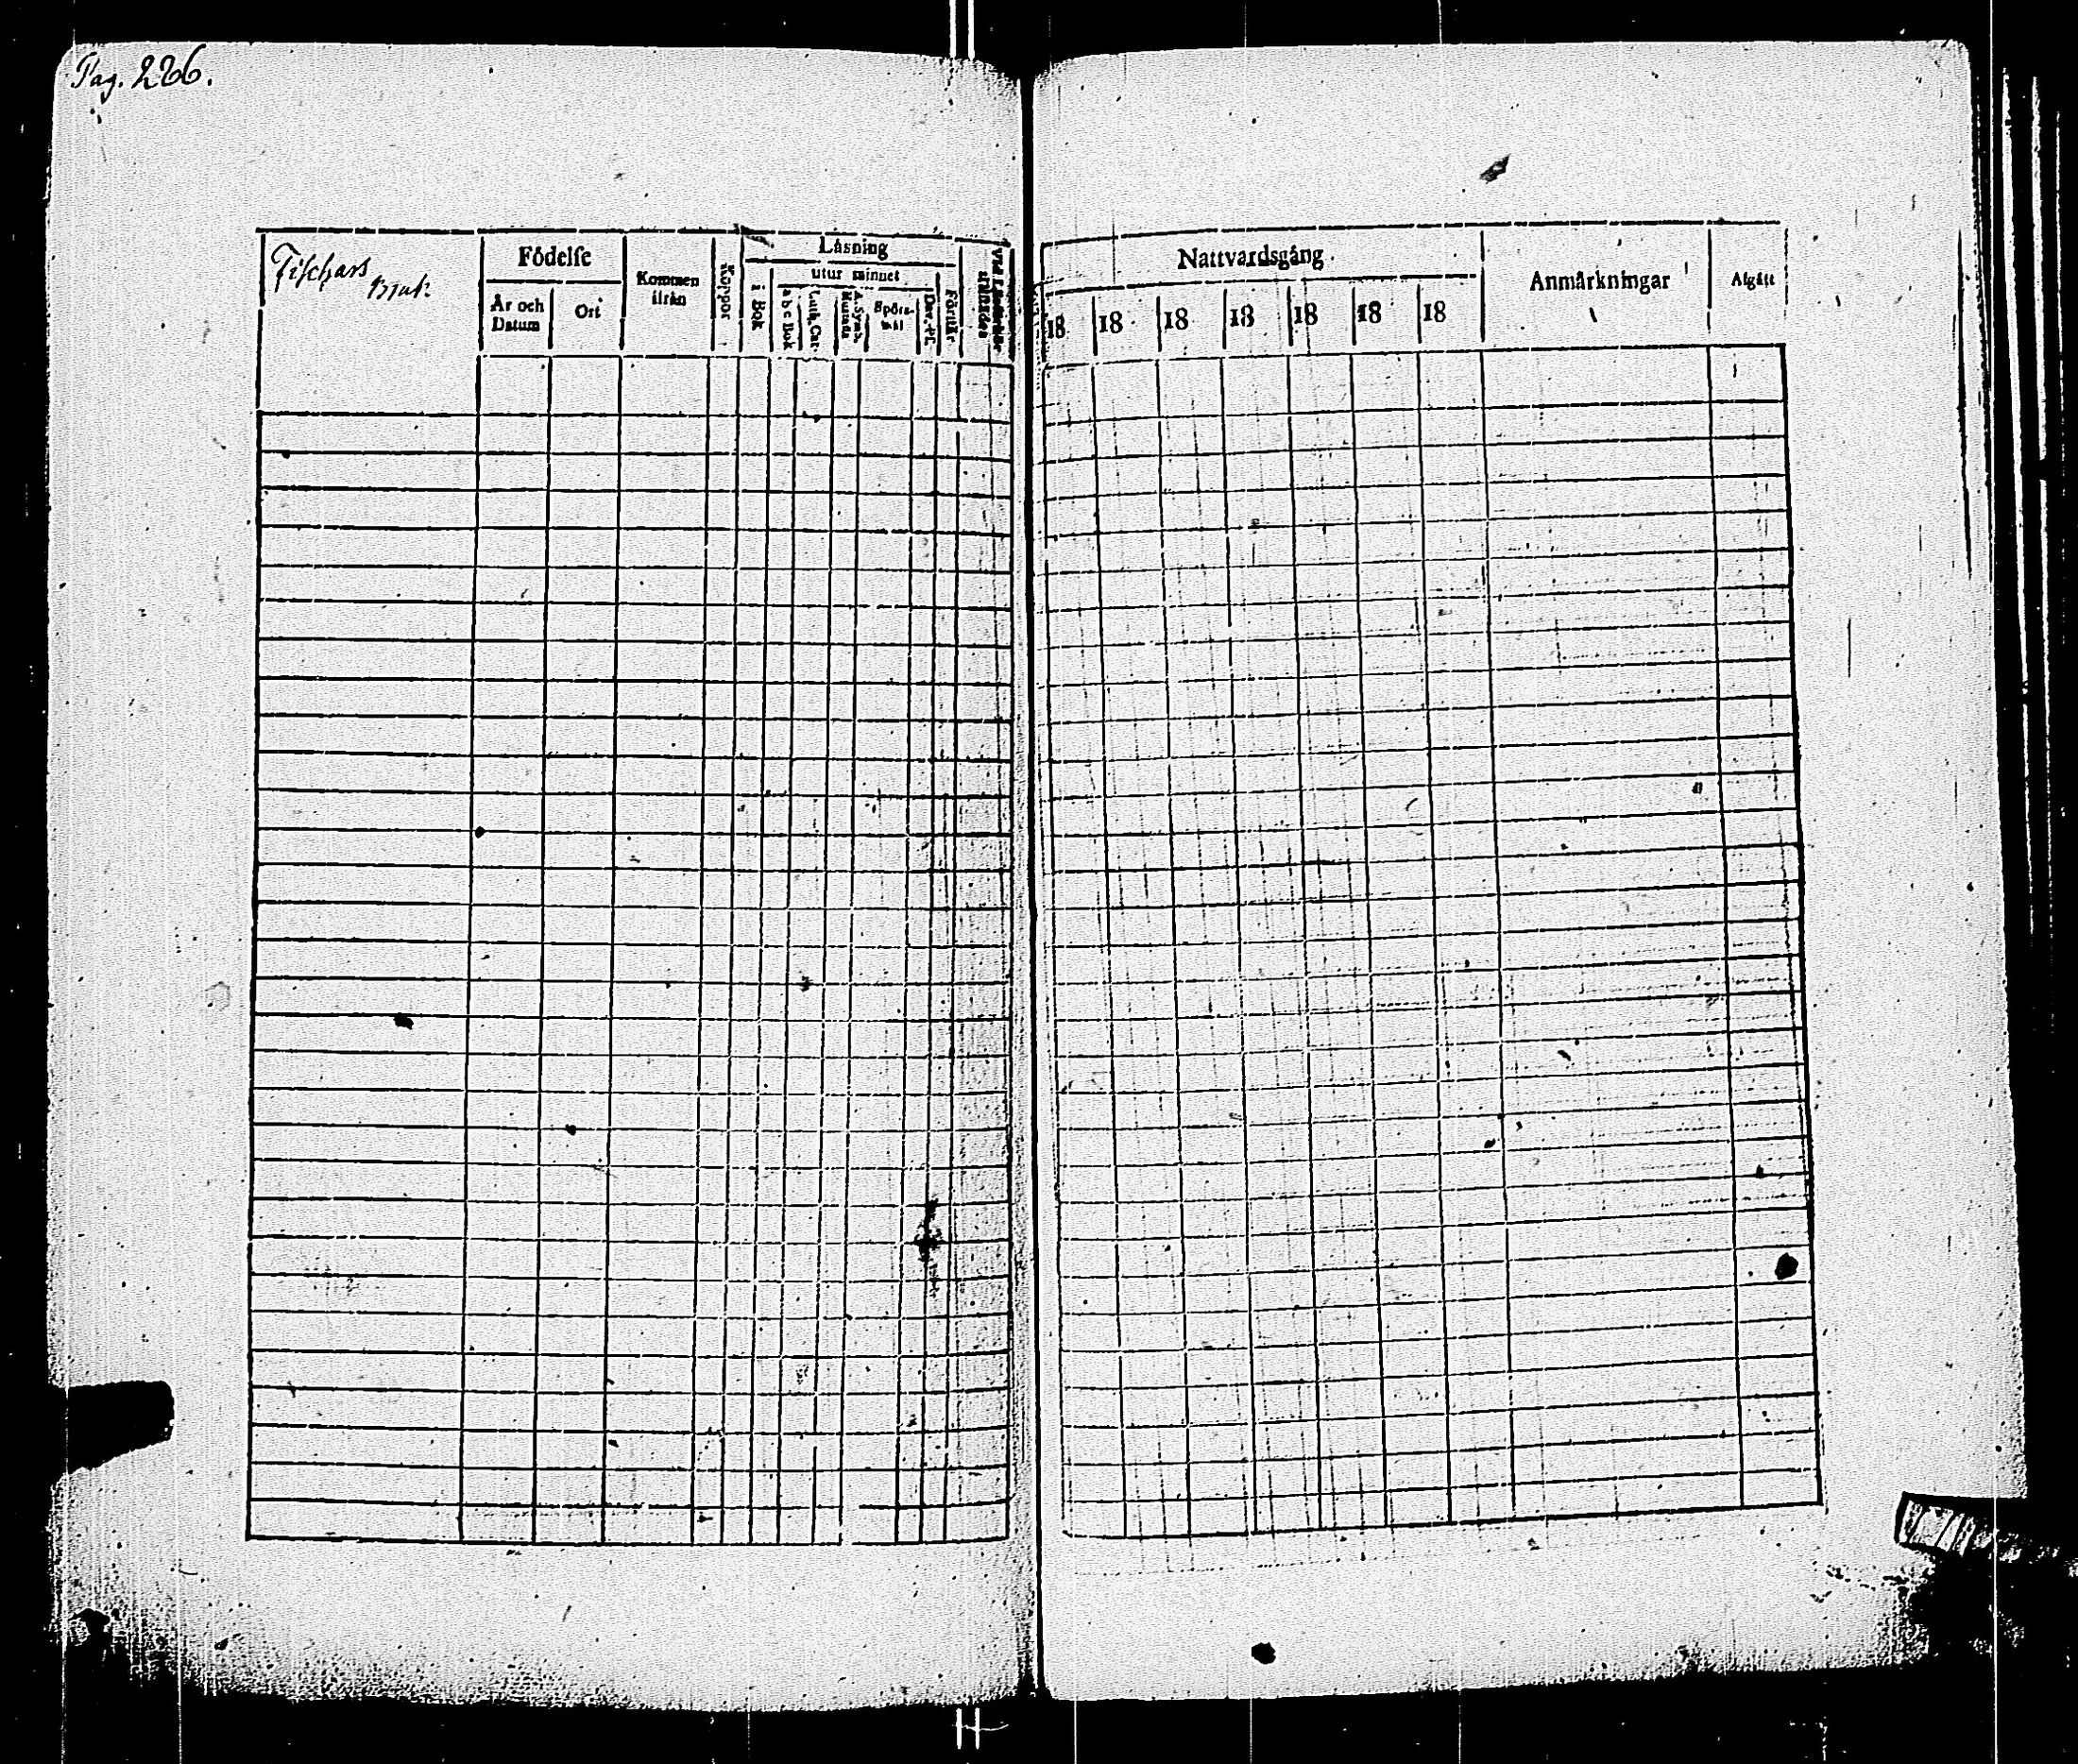 Pag. 226.
Fischars Bruk
Födelse
År och Datum
Ort
Kommen ifrån
Koppor
Läsning
i Bok
utur minnet
a b c Bok
Luth. Cat.
A. Symb.
Hustafla
Spörs-
mål
Dav. Ps.
Förstår
Nattvardsgång.
18 18 18 18 18 18 18
Anmärkningar
Afgått